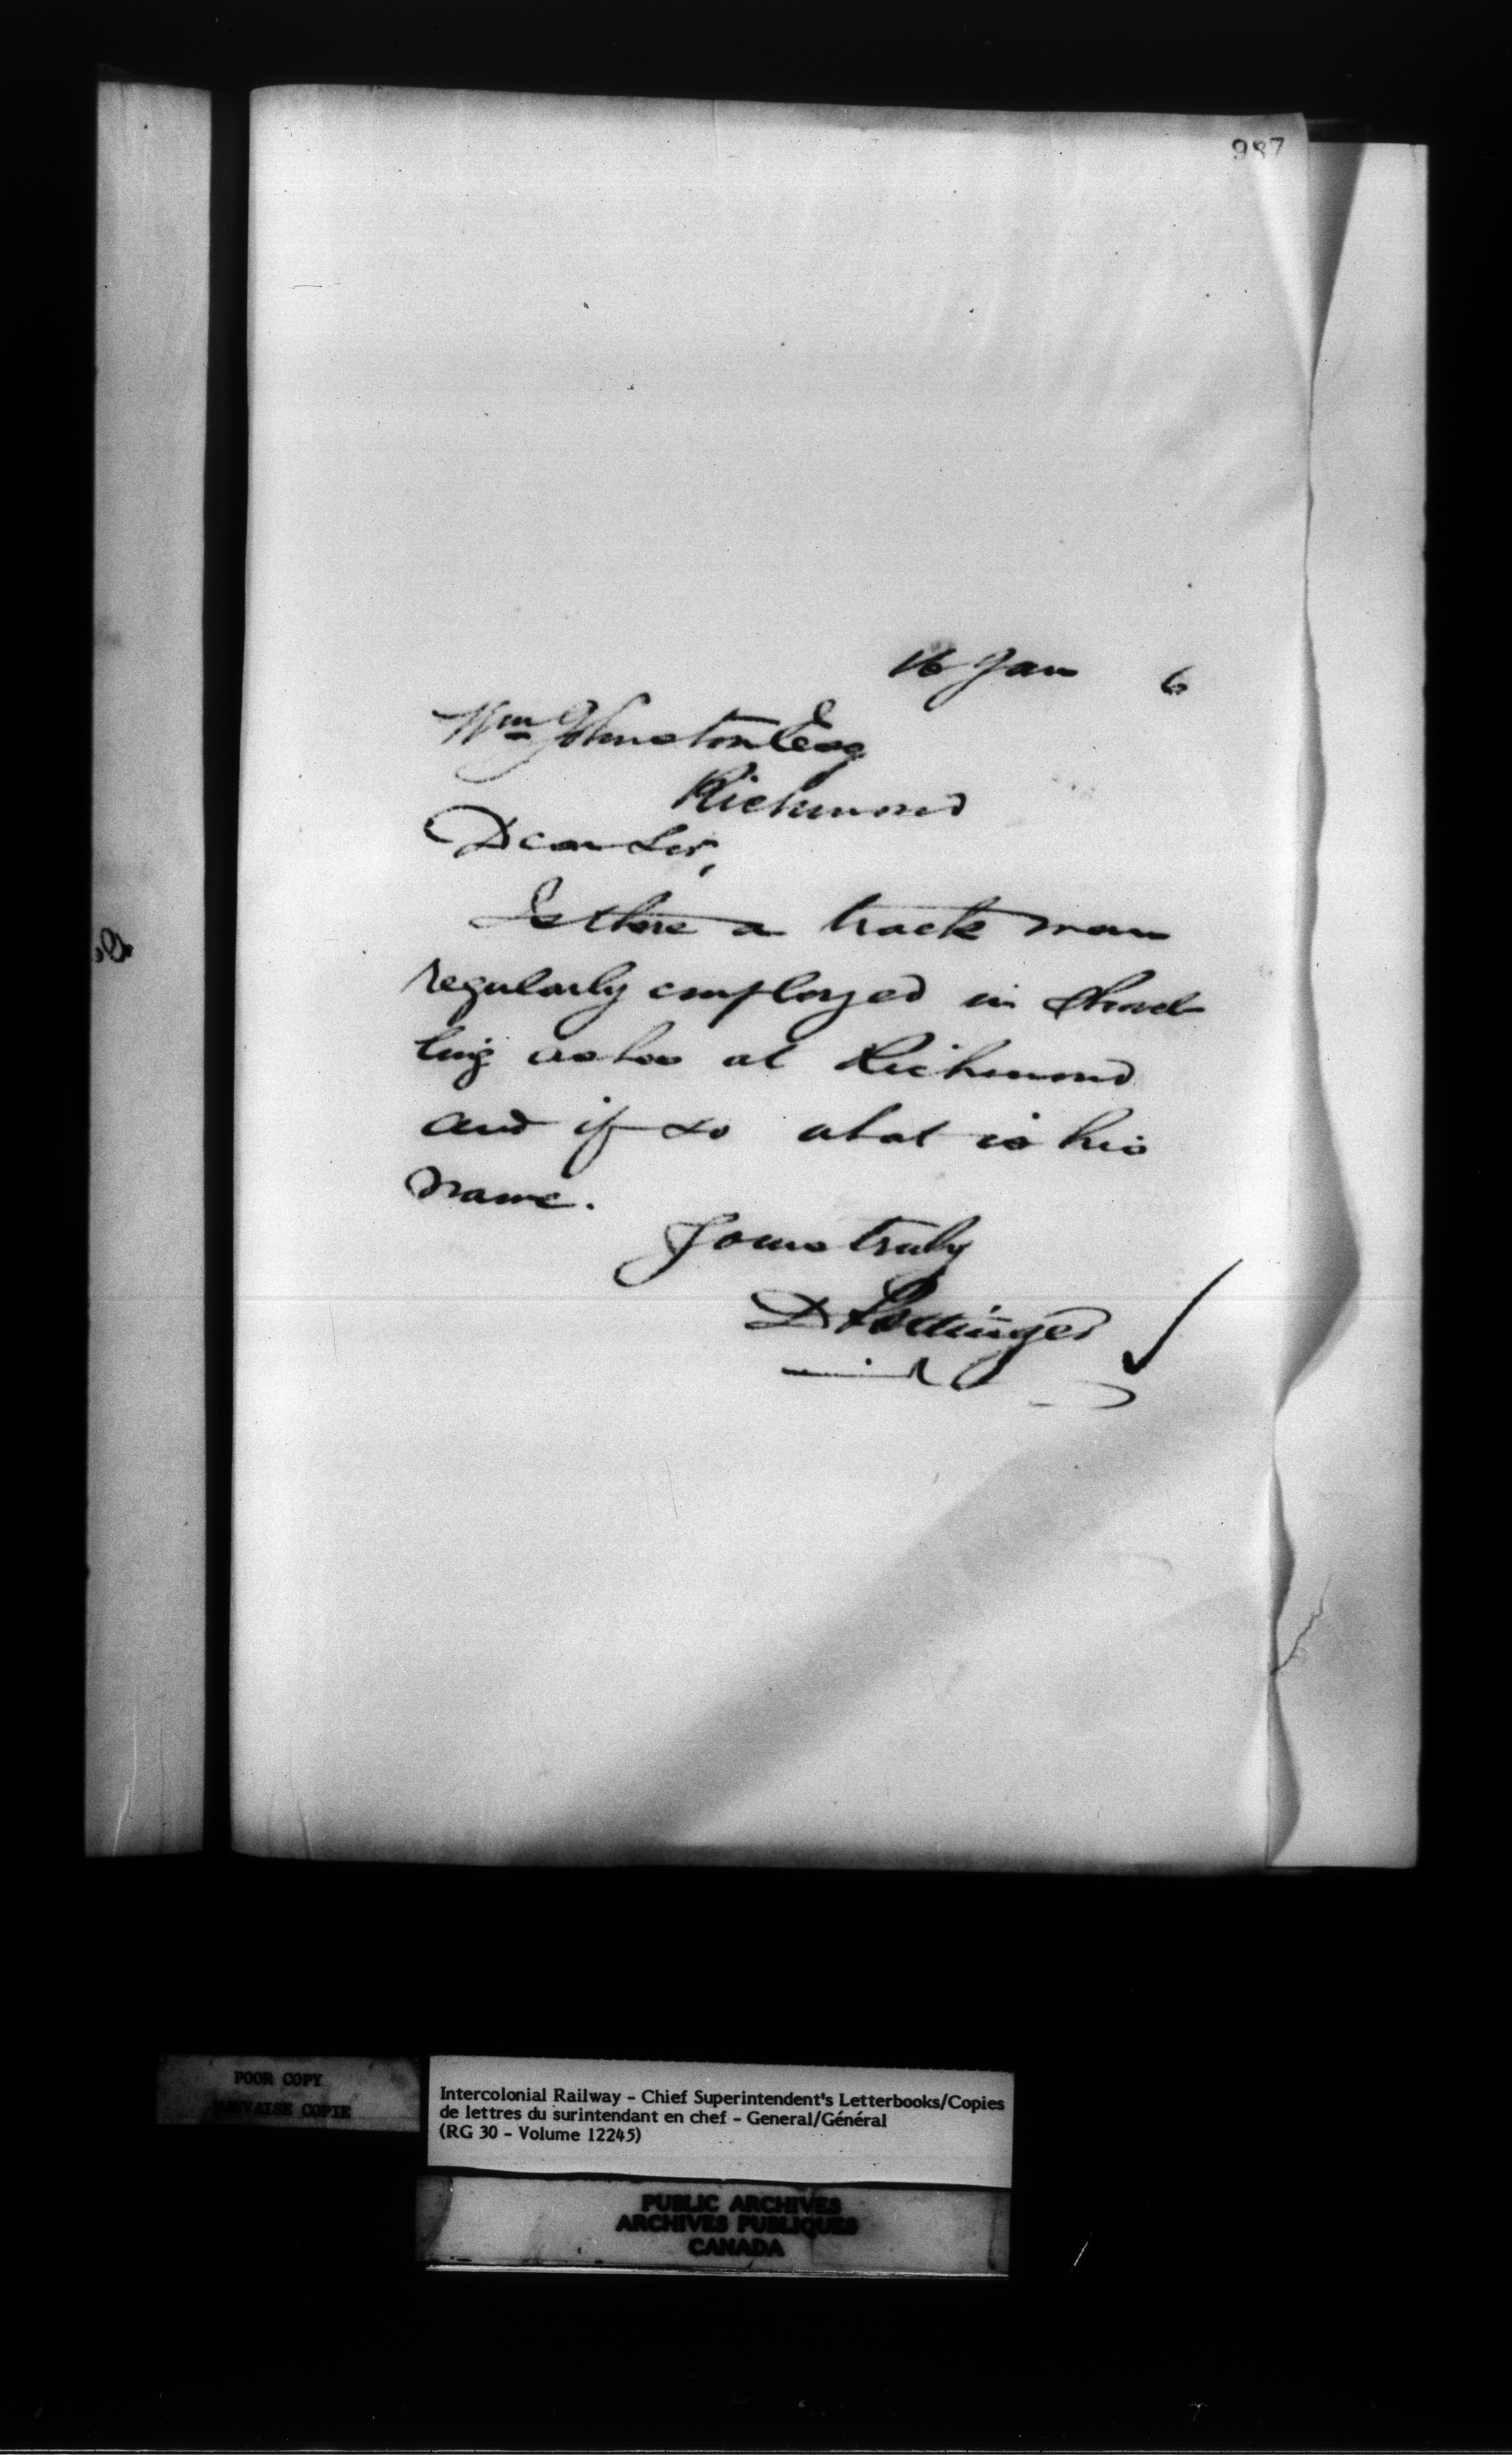 987
16 Jan 6
Wm Johnston Esq
Richmond
Dear Sir,
Is there a track man
regularly employed in
ling ashes at Richmond
and if so what is his
name.
Yours truly
D Pottinger
POOR COPY
MAUVAISE COPIE
Intercolonial Railway - Chief Superintendent's Letterbooks/Copies
de lettres du surintendant en chef - General/Général
(RG 30 - Volume 12245)
PUBLIC ARCHIVES
ARCHIVES PUBLIQUES
CANADA